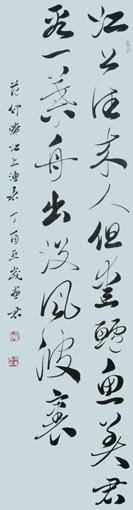 江上往来人但爱鲈鱼美君
看一叶舟出没风波里
范仲淹江上渔者丁酉